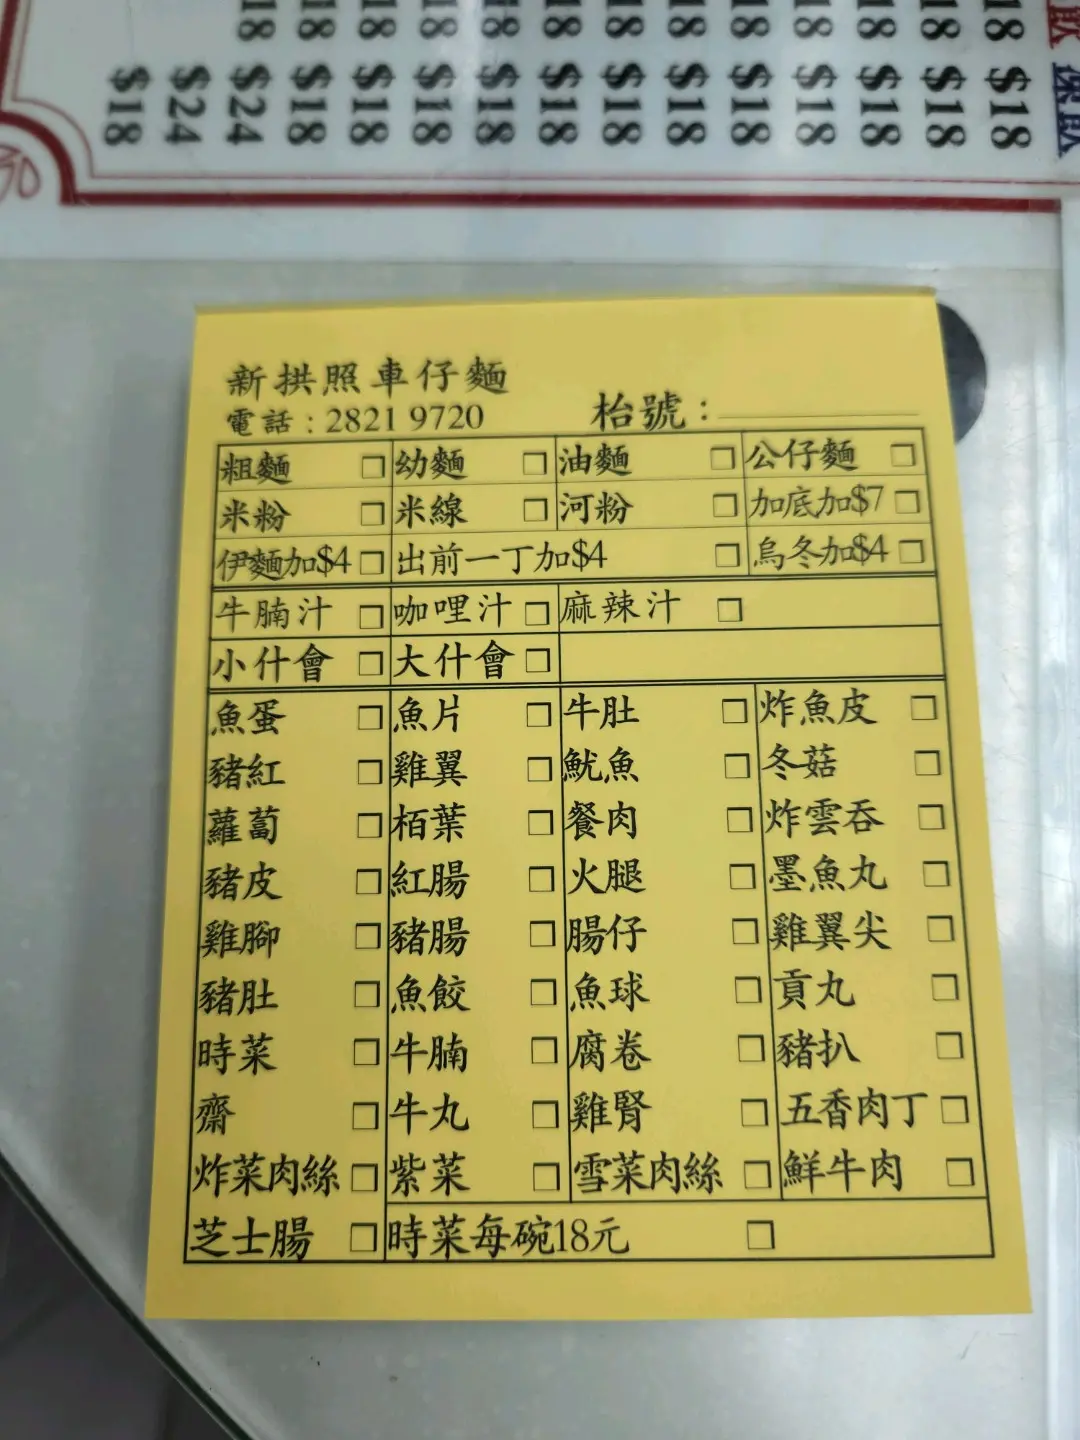 $18 $18 $18 $18 $18 $18 $18 $18 $18 $18 $18 $18 $24 $24 $18
新拱照車仔麵
電話：2821 9720 枱號：
粗麵 □ 幼麵 □ 油麵 □ 公仔麵 □
米粉 □ 米線 □ 河粉 □ 加底加$7 □
伊麵加$4 □ 出前一丁加$4 □ 烏冬加$4 □
牛腩汁 □ 咖哩汁 □ 麻辣汁 □
小什會 □ 大什會 □
魚蛋 □ 魚片 □ 牛肚 □ 炸魚皮 □
豬紅 □ 雞翼 □ 魷魚 □ 冬菇 □
蘿蔔 □ 栢葉 □ 餐肉 □ 炸雲吞 □
豬皮 □ 紅腸 □ 火腿 □ 墨魚丸 □
雞腳 □ 豬腸 □ 腸仔 □ 雞翼尖 □
豬肚 □ 魚餃 □ 魚球 □ 貢丸 □
時菜 □ 牛腩 □ 腐卷 □ 豬扒 □
齋 □ 牛丸 □ 雞腎 □ 五香肉丁 □
炸菜肉絲 □ 紫菜 □ 雪菜肉絲 □ 鮮牛肉 □
芝士腸 □ 時菜每碗18元 □